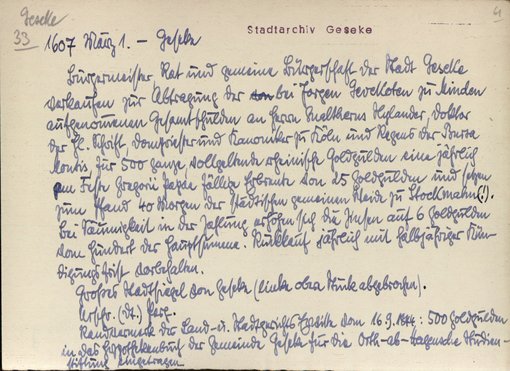 Geseke
33
4
Stadtarchiv Geseke
1607 März 1. – Geseke
Bürgermeister, Rat und gemeine Bürgerschaft der Stadt Geseke
verkaufen zur Abtragung der von bei Jorgen Gevekoten zu Minden
aufgenommenen Gesamtschulden an Herrn Melchern Hylander, Doktor
der Hl. Schrift, Dompriester und Kanoniker zu Köln und Regens der Bursa
Montis für 500 ganze, vollgeltende rheinische Goldgulden eine jährlich
am Feste Gregorii Papae fällige Erbrente von 25 Goldgulden und setzen
zum Pfand 40 Morgen der städtischen gemeinen Weide zu Stockmahn(!).
Bei Säumigkeit in der Zahlung erhöhen sich die Zinsen auf 6 Goldgulden
vom Hundert der Hauptsumme. Rückkauf jährlich mit halbjähriger Kün-
digungsfrist vorbehalten.
Großes Stadtsiegel von Geseke (linke obere Stück abgebrochen).
Urschr. (dt.) Perg.
Randvermerk des Land- u. Stadtgerichts Erwitte vom 16.9.1844: 500 Goldgulden
in das Hypothekenbuch der Gemeinde Geseke für die Orth-ab-Hagensche Studien-
stiftung eingetragen